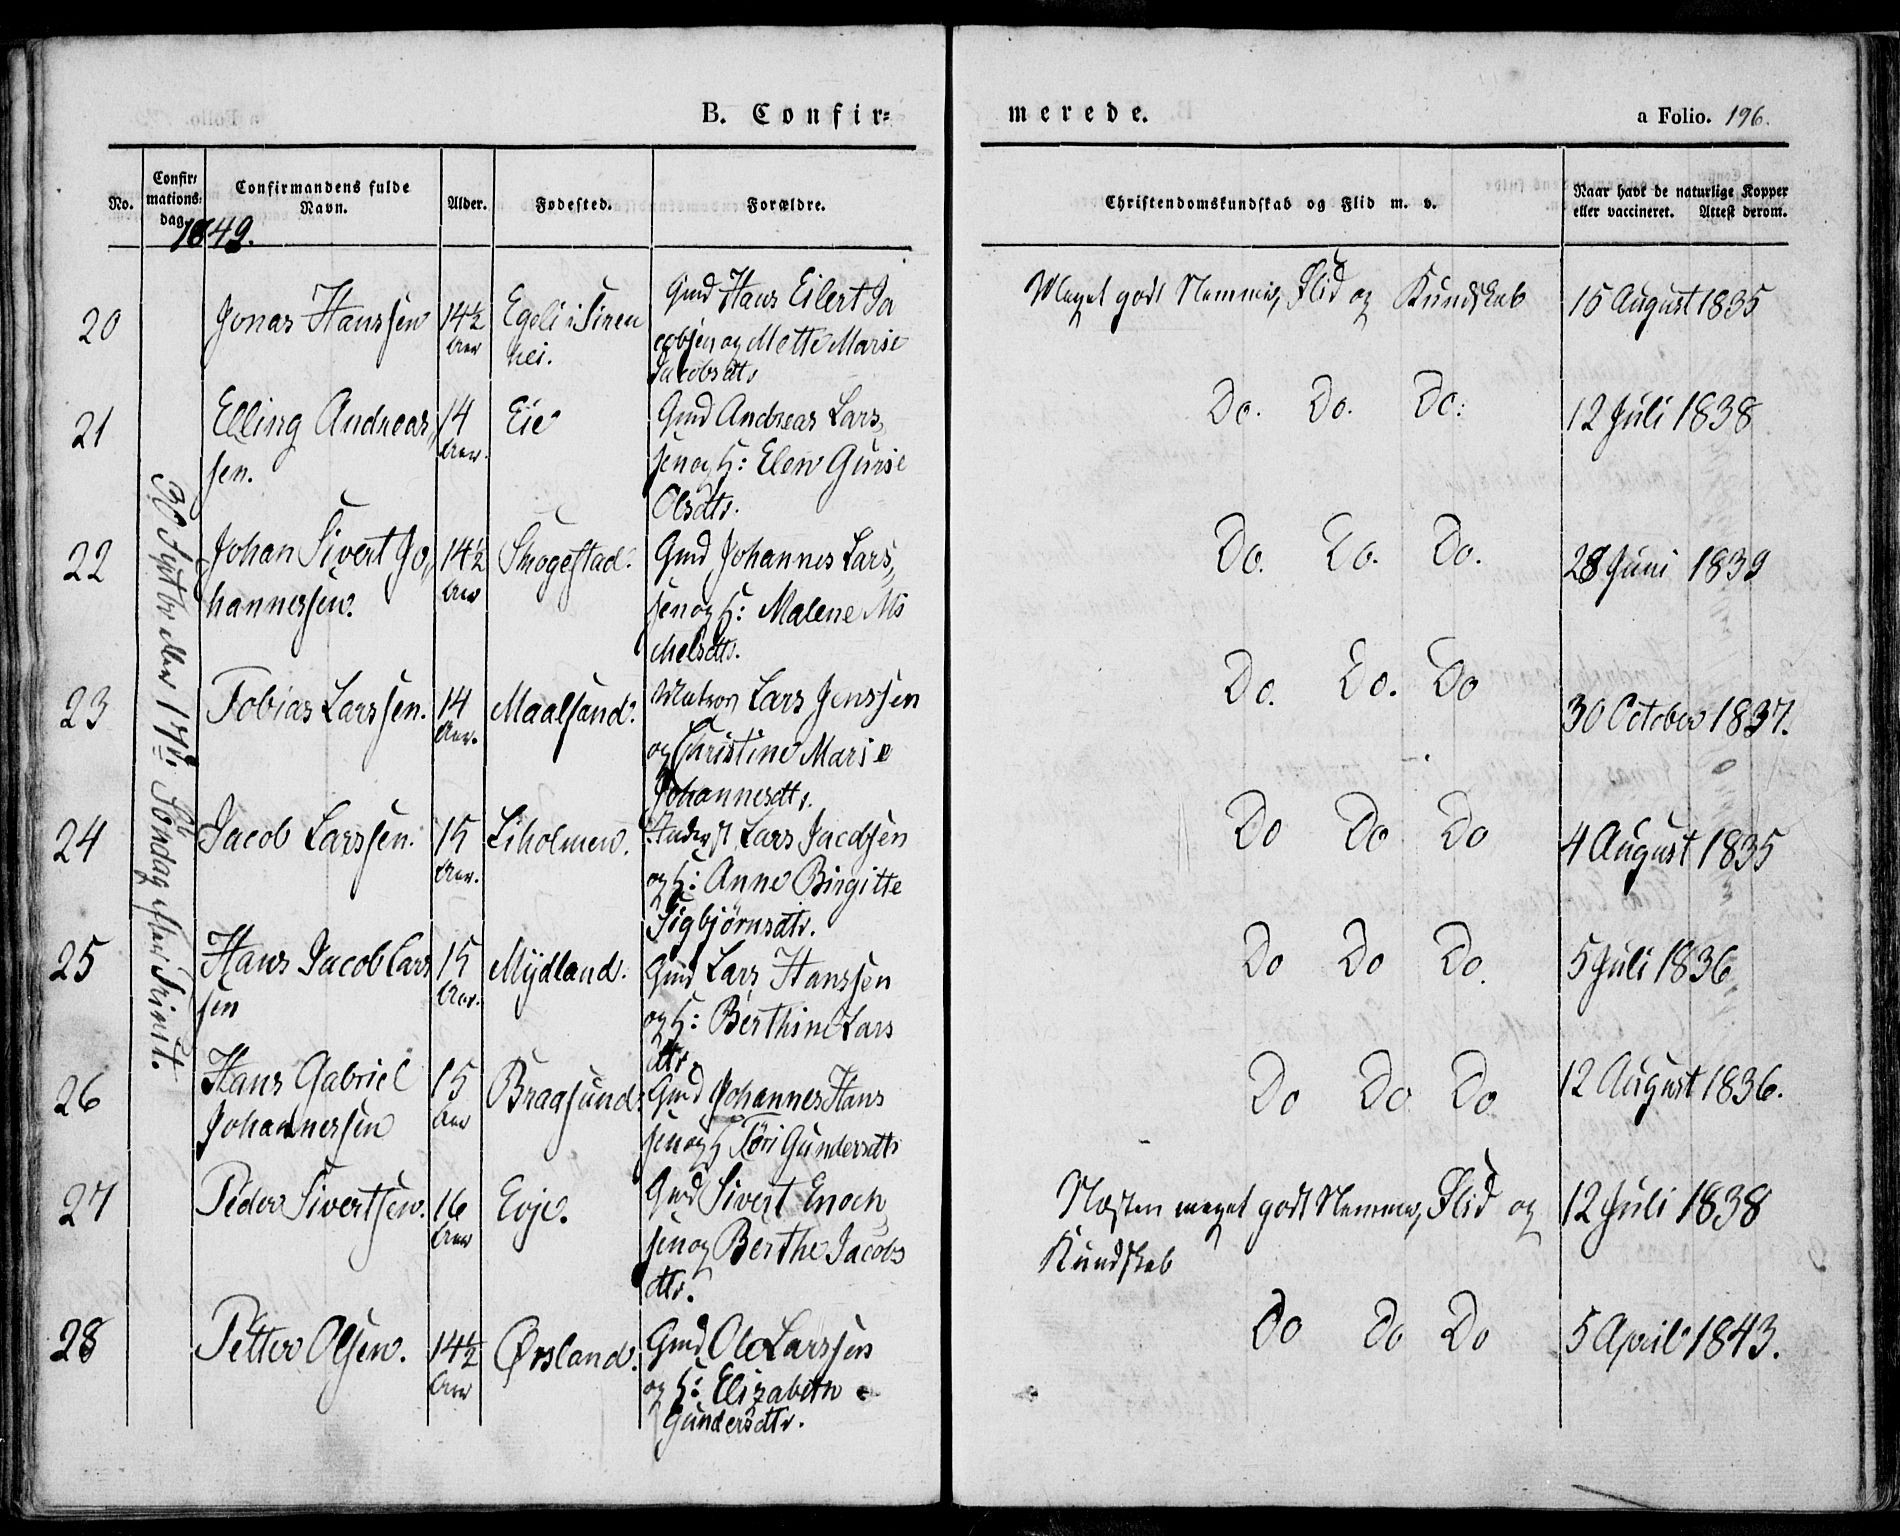 B. Confir=
merede.
a Folio. 196.
No.
Confir=
mations=
dag.
Confirmandens fulde
Navn.
Alder.
Fødested.
Forældre.
Christendomskundskab og Flid m. v.
Naar havt de naturlige Kopper
eller vaccineret. Attest derom.
1849.
30 Septbr eller 17de Søndag efter Trinit.
20
Jonas Hanssen
14½
Aar
Egeli i Siren
hei.
Gmd Hans Eilert Ja
cobsen og Mette Marie
Jacobsdtr
Meget godt Nemme, Flid og Kundskab
15 August 1835
21
Elling Andreas
sen.
14
Aar.
Eie
Gmd Andreas Lars,
sen og H: Elen Gurie
Olsdtr.
Do. Do. Do.
12 Juli 1838
22
Johan Sivert Jo,,
hannessen.
14½
Aar
Skogestad.
Gmd Johannes Lars,,
sen og H: Malene Mi
chelsdtr.
Do. Do. Do.
28 Juni 1839
23
Tobias Larssen.
14
Aar.
Maalsund.
Lars Jenssen
og Christine Marie
Johannesdtr.
Do. Do. Do
30 October 1837.
24
Jacob Larssen.
15
Aar.
Liholmen.
Lars Jacobsen
og H: Anne Birgitte
Sigbjørnsdtr.
Do Do Do
4 August 1835
25
Hans Jacob Lars
sen
15
Aar.
Mydland.
Gmd Lars Hanssen
og H: Berthine Lars
dtr.
Do Do Do.
5 Juli 1836
26
Hans Gabriel
Johannessen
15
Aar
Bragsund.
Gmd Johannes Hans
sen og H Töri Gundersdtr
Do Do Do
12 August 1836.
27
Peder Sivertsen.
16
Aar
Evje.
Gmd Sivert Enoch,
sen og Berthe Jacobs
dtr.
Næsten meget godt Nemme, Flid og
Kundskab
12 Juli 1838
28
Petter Olsen.
14½
Aar
Ørsland.
Gmd Ole Larssen
og H: Elizabeth
Gundersdtr.
Do Do Do
5 April 1843.